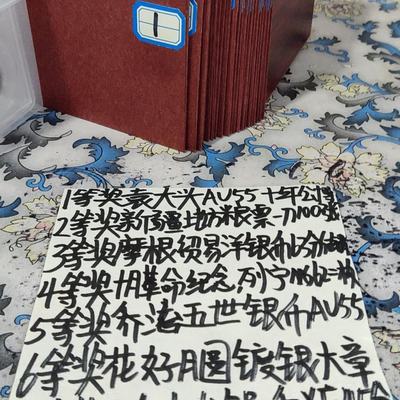 1
1等奖袁大头AU55十年公博
2等奖新疆地方粮票一刀100张
3等奖摩根贸易洋银币
4等奖十月革命纪念列宁MS62
5等奖乔治五世银币AU55
6等奖花好月圆镀银大章